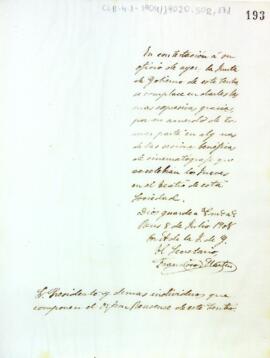 193
En contestación á su
oficio de ayer, la Junta
de Gobierno de este
se complace en darles las
mas expresivas gracias
por su acuerdo de to-
mar parte en algunas
de las sesiones benéficas
de cinematógrafo que
se celebran los Jueves
en el teatro de esta
Sociedad.
Dios guarde á
8 de Julio 1908
de la J. de G.
El Secretario
Francisco
Presidente y demas individuos que
componen el de este